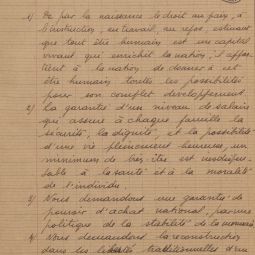 1) De par la naissance le droit au pain, à
l'instruction, au travail, au repos, estimant
que tout être humain est un capital
vivant qui enrichit la nation, il appar-
tient à la nation de donner à cet
être humain toutes les possibilités
pour son complet développement.
2) La garantie d'un niveau de salaire
qui assure à chaque famille la
sécurité, la dignité, et la possibilité
d'une vie pleinement heureuse, un
minimum de bien être est indispen-
sable à la santé et à la moralité
de l'individu.
3) Nous demandons une garantie de
pouvoir d'achat national, par une
politique de la stabilité de la monnaie
4) Nous demandons la reconstruction
dans les libertés traditionnelles d'un